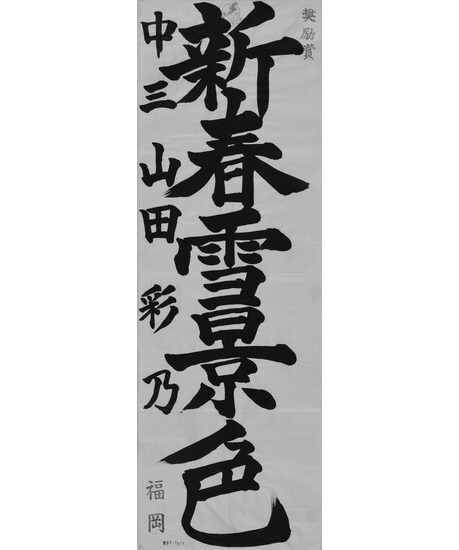 奨励賞
新春雪景色
中三 山田彩乃
福岡